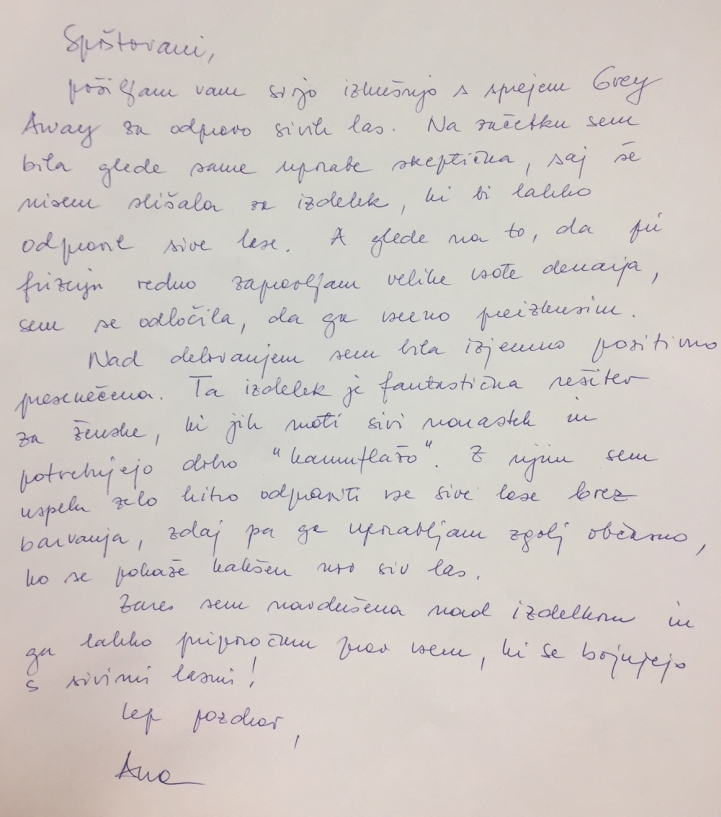 Spoštovani,
pošiljam vam svojo izkušnjo s sprejem Grey
Away za odpravo sivih las. Na začetku sem
bila glede same uporabe skeptična, saj še
nisem slišala za izdelek, ki bi lahko
odpravil sive lase. A glede na to, da pri
frizerju redno zapravljam velike vsote denarja,
sem se odločila, da ga vseeno preizkusim.
Nad delovanjem sem bila izjemno pozitivno
presenečena. Ta izdelek je fantastična rešitev
za ženske, ki jih moti sivi narastek in
potrebujejo dobro "kamuflažo". Z njim sem
uspela zelo hitro odpraviti vse sive lase brez
barvanja, zdaj pa ga uporabljam zgolj občasno,
ko se pokaže kakšen nov siv las.
Zares sem navdušena nad izdelkom in
ga lahko priporočam prav vsem, ki se bojujejo
s sivimi lasmi!
Lep pozdrav,
Ana